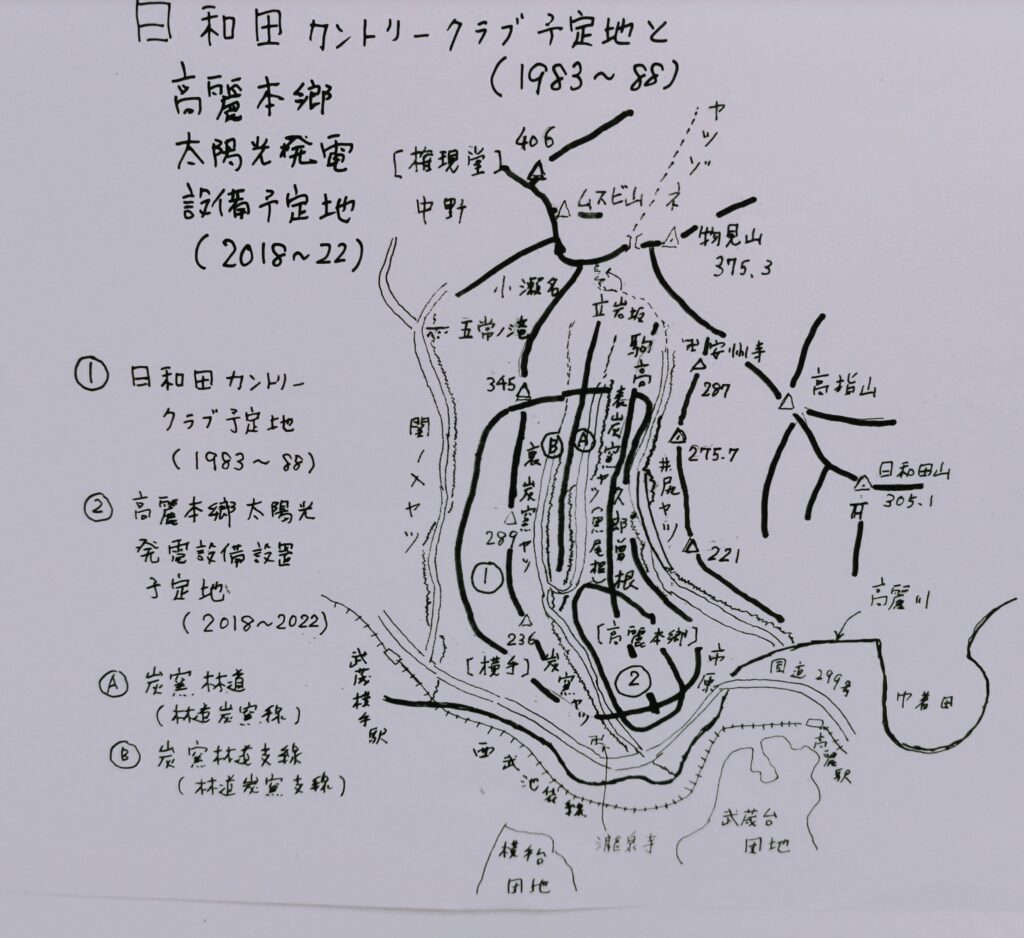 日和田カントリークラブ予定地と
(1983～88)
高麗本郷
太陽光発電
設備予定地
(2018～22)
ヤツゾネ
406
[権現堂]
中野
ムスビ山
物見山
375.3
小瀬名
五常ノ滝
立岩坂
駒高
卍安州寺
287
高指山
345
① 日和田カントリー
クラブ予定地
(1983～88)
関ノメヤツ
裏炭窯ヤツ
Ⓑ
Ⓐ
表炭窯ヤツ
275.7
井尻ヤツ
日和田山
305.1
289
221
① 
② 高麗本郷太陽光
発電設備設置
予定地
(2018～2022)
高麗川
236
[横手]
炭窯ヤツ
[高麗本郷]
②
市原
国道299号
巾着田
武蔵横手駅
Ⓐ 炭窯林道
(林道炭窯線)
Ⓑ 炭窯林道支線
(林道炭窯支線)
西武池袋線
卍
高麗駅
武蔵台
団地
瀧泉寺
横手台
団地